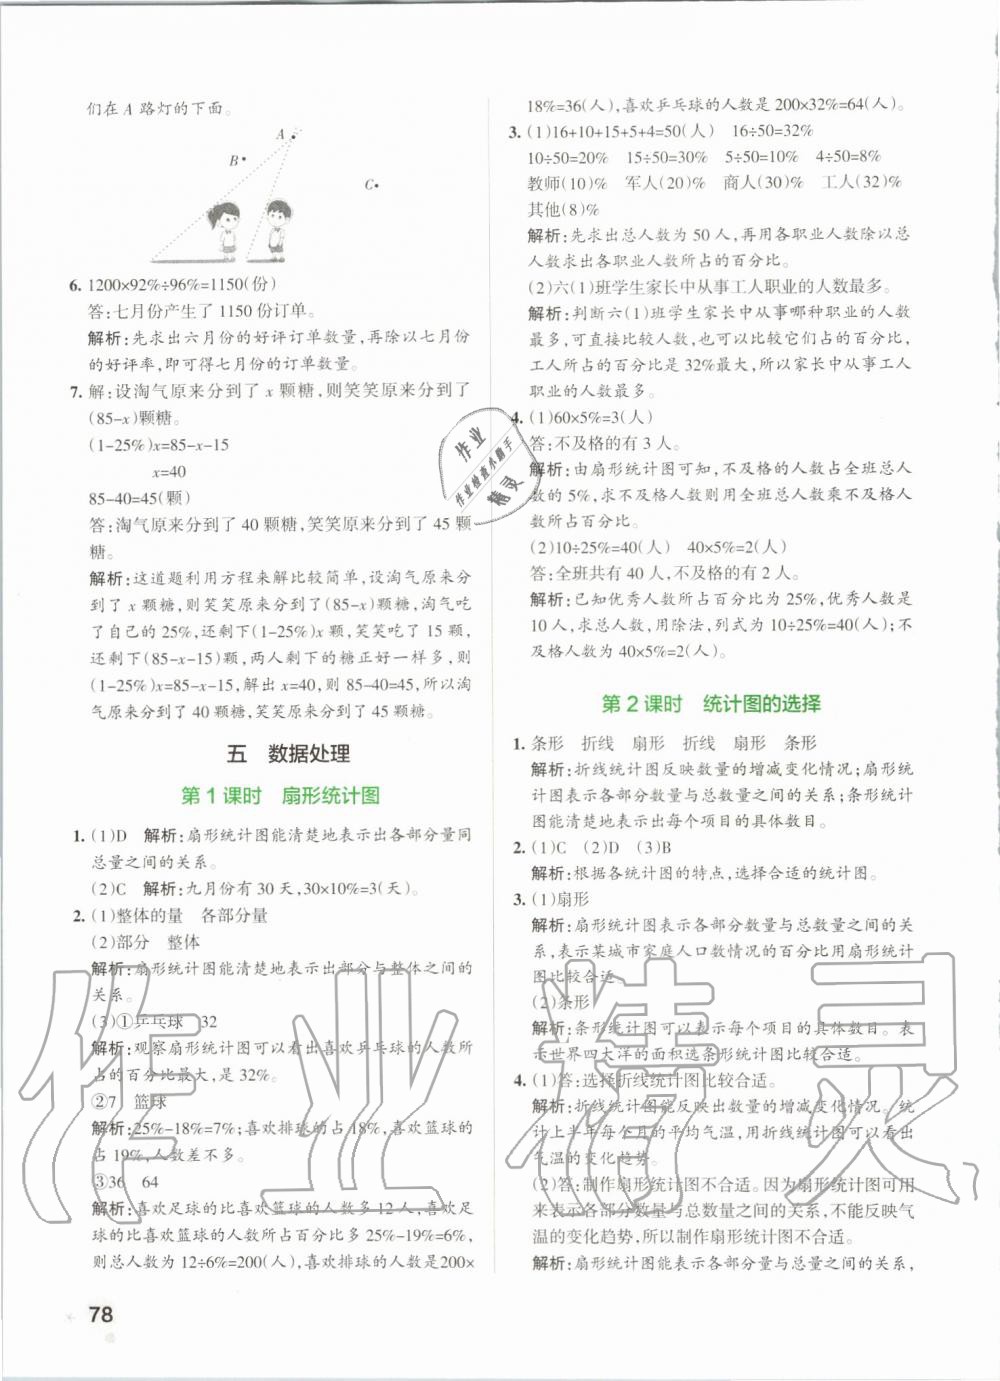 们在 A 路灯的下面。
A
B
C
6. 1200×92%÷96%=1150(份)
答:七月份产生了 1150 份订单。
解析:先求出六月份的好评订单数量,再除以七月份
的好评率,即可得七月份的订单数量。
7. 解:设淘气原来分到了 x 颗糖,则笑笑原来分到了
(85-x)颗糖。
(1-25%)x=85-x-15
x=40
85-40=45(颗)
答:淘气原来分到了 40 颗糖,笑笑原来分到了 45 颗
糖。
解析:这道题利用方程来解比较简单,设淘气原来分
到了 x 颗糖,则笑笑原来分到了(85-x)颗糖,淘气吃
了自己的 25%,还剩下(1-25%)x 颗,笑笑吃了 15 颗,
还剩下(85-x-15)颗,两人剩下的糖正好一样多,则
(1-25%)x=85-x-15,解出 x=40,85-40=45,所以淘
气原来分到了 40 颗糖,笑笑原来分到了 45 颗糖。
五 数据处理
第 1 课时 扇形统计图
1. (1)D 解析:扇形统计图能清楚地表示出各部分量同
总量之间的关系。
(2)C 解析:九月份有 30 天,30×10%=3(天)。
2. (1)整体的量 各部分量
(2)部分 整体
解析:扇形统计图能清楚地表示出部分与整体之间的
关系。
(3)①乒乓球 32
解析:观察扇形统计图可以看出喜欢乒乓球的人数所
占的百分比最大,是 32%。
②7 篮球
解析:25%-18%=7%;喜欢排球的占 18%,喜欢篮球的
占 19%,人数差不多。
③36 64
解析:喜欢足球的比喜欢篮球的人数多 12 人,喜欢足
球的比喜欢篮球的人数所占百分比多 25%-19%=6%,
总人数为 12÷6%=200(人),喜欢排球的人数是 200×
18%=36(人),喜欢乒乓球的人数是 200×32%=64(人)。
3. (1)16+10+15+5+4=50(人) 16÷50=32%
10÷50=20% 15÷50=30% 5÷50=10% 4÷50=8%
教师(10)% 军人(20)% 商人(30)% 工人(32)%
其他(8)%
解析:先求出总人数为 50 人,再用各职业人数除以总
人数求出各职业人数所占的百分比。
(2)六(1)班学生家长中从事工人职业的人数最多。
解析:判断六(1)班学生家长中从事哪种职业的人数最
多,可直接比较人数,也可以比较它们占的百分比,
工人所占的百分比是 32%最大,所以家长中从事工人
职业的人数最多。
4. (1)60×5%=3(人)
答:不及格的有 3 人。
解析:由扇形统计图可知,不及格的人数占全班总人
数的 5%,求不及格人数则用全班总人数乘不及格人
数所占百分比。
(2)10÷25%=40(人) 40×5%=2(人)
答:全班共有 40 人,不及格的有 2 人。
解析:已知优秀人数所占百分比为 25%,优秀人数是
10 人,求总人数,用除法,列式为 10÷25%=40(人);不
及格人数为 40×5%=2(人)。
第 2 课时 统计图的选择
1. 条形 折线 扇形 折线 扇形 条形
解析:折线统计图反映数量的增减变化情况;扇形统
计图表示各部分数量与总数量之间的关系;条形统计
图能清楚地表示出每个项目的具体数目。
2. (1)C (2)D (3)B
解析:根据各统计图的特点,选择合适的统计图。
3. (1)扇形
解析:扇形统计图表示各部分数量与总数量之间的关
系,表示某城市家庭人口数情况的百分比用扇形统计
图比较合适。
(2)条形
解析:条形统计图可以表示每个项目的具体数目。表
示世界四大洋的面积选条形统计图比较合适。
4. (1)答:选择折线统计图比较合适。
解析:折线统计图能反映出数量的增减变化情况。统
计上半年每个月的平均气温,用折线统计图可以看出
气温的变化趋势。
(2)答:制作扇形统计图不合适。因为扇形统计图可用
来表示各部分数量与总数量之间的关系,不能反映气
温的变化趋势,所以制作扇形统计图不合适。
解析:扇形统计图能表示各部分量与总量之间的关系,
78
作业
作业检查小助手
精灵
作业精灵